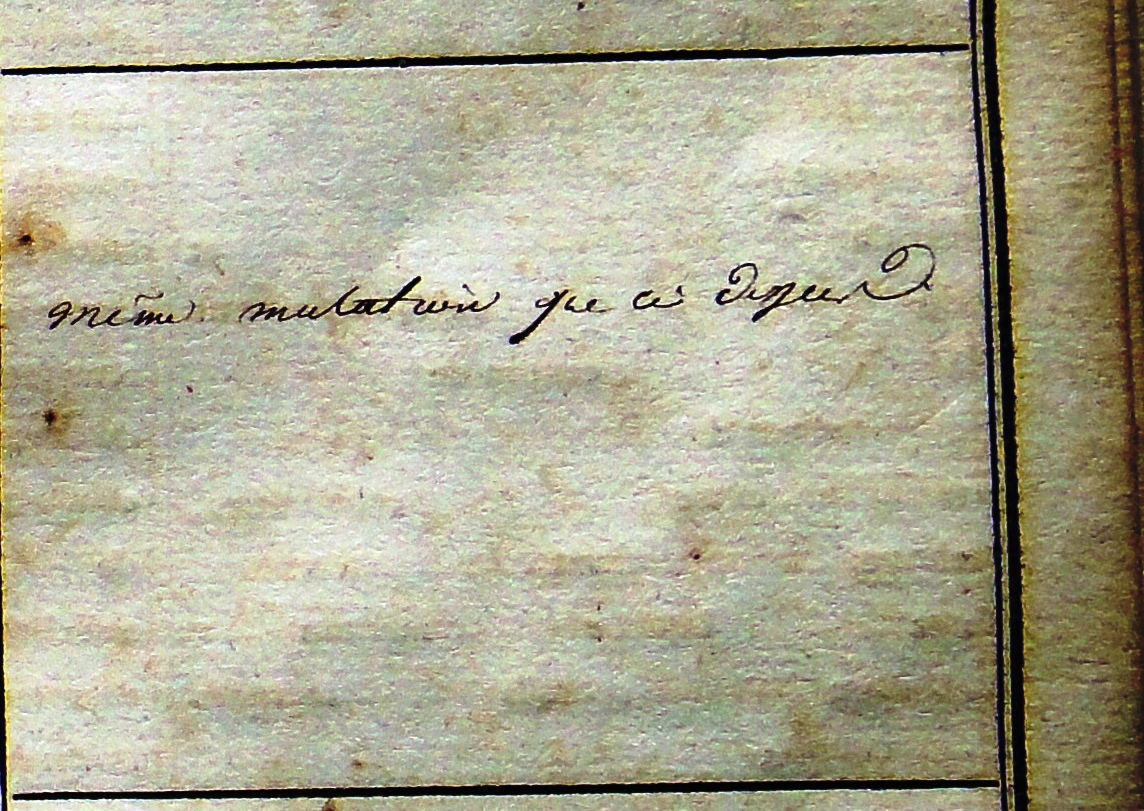 même mutation que ci dessus